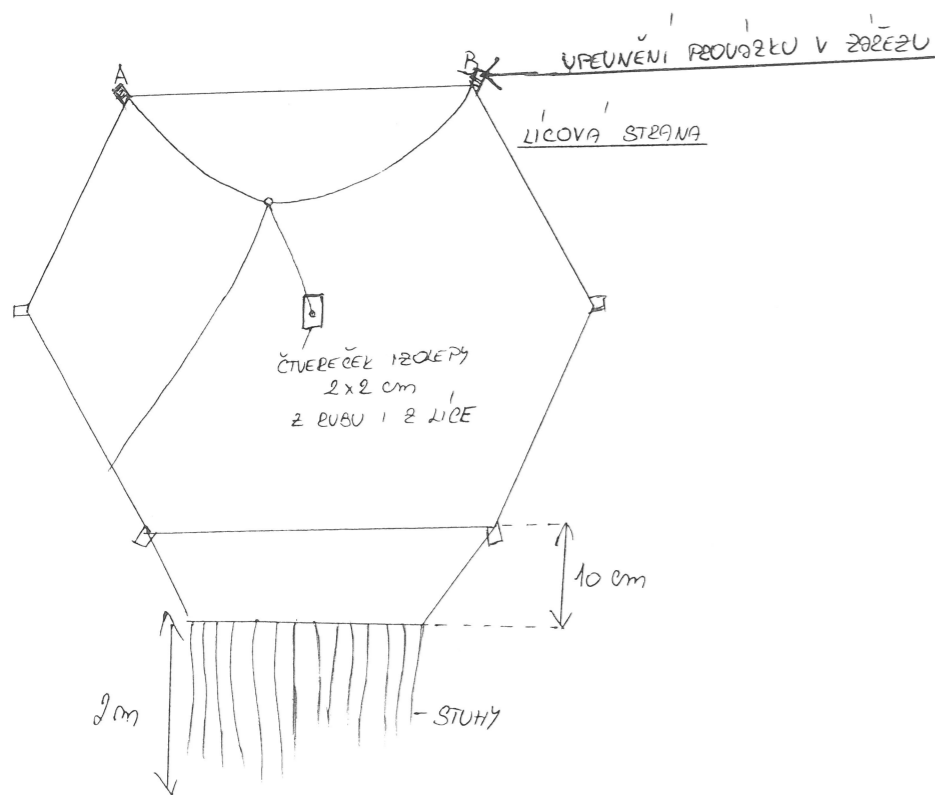 A
B
UPEVNĚNÍ PROVÁZKU V ZÁŘEZU
LÍCOVÁ STRANA
ČTVEREČEK IZOLEPY
2x2 cm
Z RUBU I Z LÍCE
10 cm
2m
STUHY